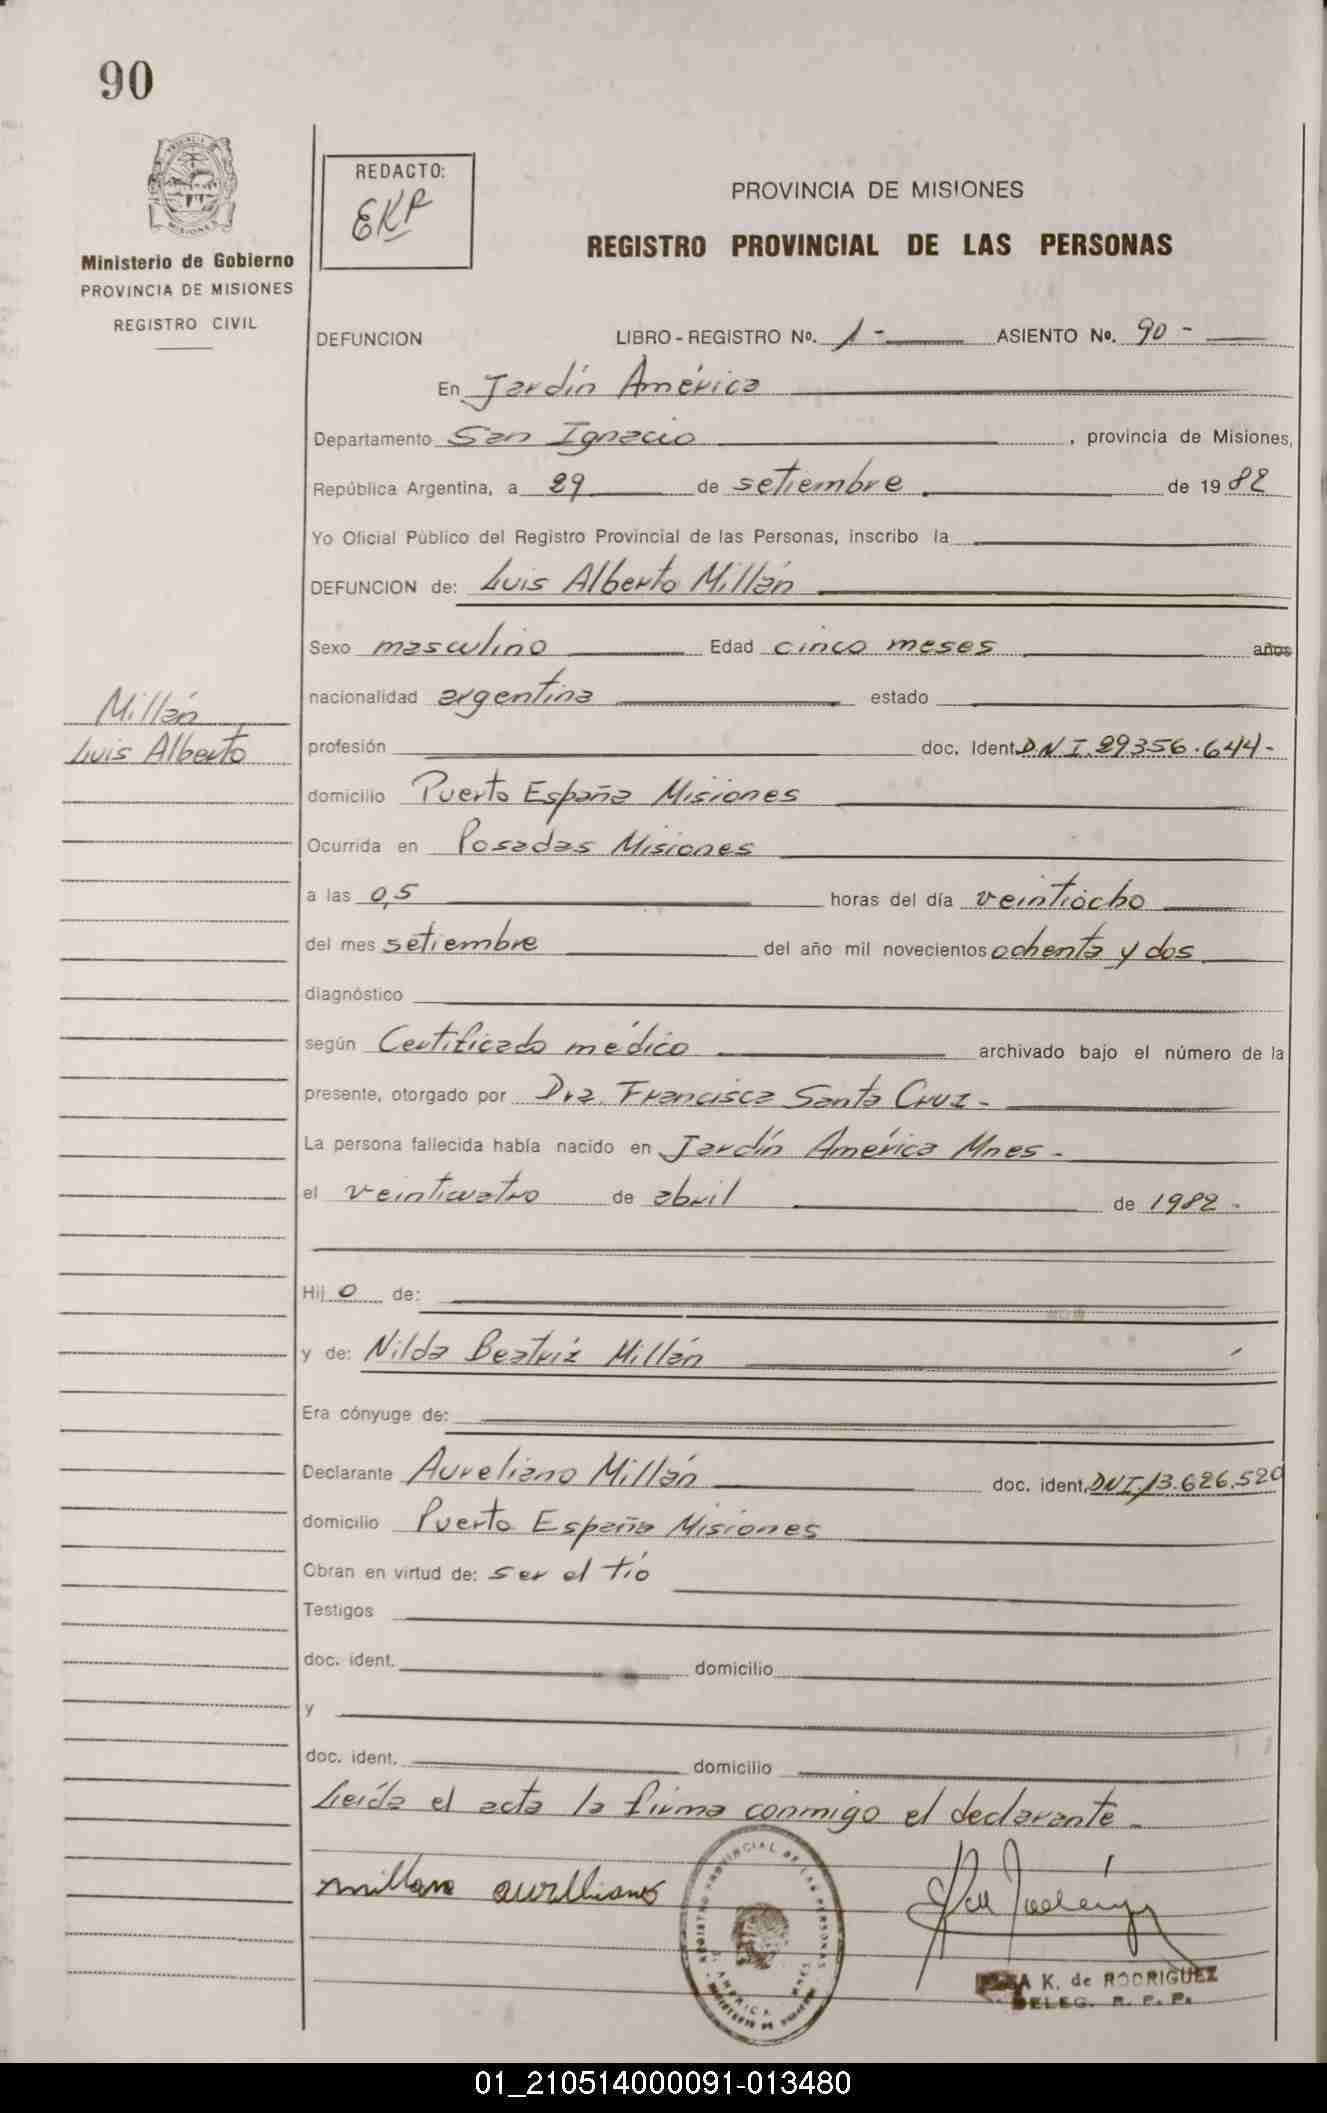 90
REDACTO:
EKR
Ministerio de Gobierno
PROVINCIA DE MISIONES
REGISTRO CIVIL
PROVINCIA DE MISIONES
REGISTRO PROVINCIAL DE LAS PERSONAS
DEFUNCION LIBRO-REGISTRO No. 1 - ASIENTO No. 90 -
En Jardín América
Departamento San Ignacio, provincia de Misiones,
República Argentina, a 29 de setiembre de 1982
Yo Oficial Público del Registro Provincial de las Personas, inscribo la
DEFUNCION de: Luis Alberto Millán
Sexo masculino Edad cinco meses años
nacionalidad argentina estado
Millán
Luis Alberto
profesión doc. Ident. D.N.I. 29356.644-
domicilio Puerto España Misiones
Ocurrida en Posadas Misiones
a las 0,5 horas del día veintiocho
del mes setiembre del año mil novecientos ochenta y dos
diagnóstico
según Certificado médico archivado bajo el número de la
presente, otorgado por Dra. Francisca Santa Cruz -
La persona fallecida había nacido en Jardín América Mnes -
el veinticuatro de abril de 1982 -
Hij o de:
y de: Nilda Beatriz Millán
Era cónyuge de:
Declarante Aureliano Millán doc. ident. DNI. 13.626.520
domicilio Puerto España Misiones
Obran en virtud de: ser el tío
Testigos
doc. ident. domicilio
y
doc. ident. domicilio
Leída el acta la firma conmigo el declarante -
millan aurelliano
REGISTRO PROVINCIAL DE LAS PERSONAS
J. AMERICA MNES.
K. de RODRIGUEZ
DELEG. R. P. P.
01_210514000091-013480